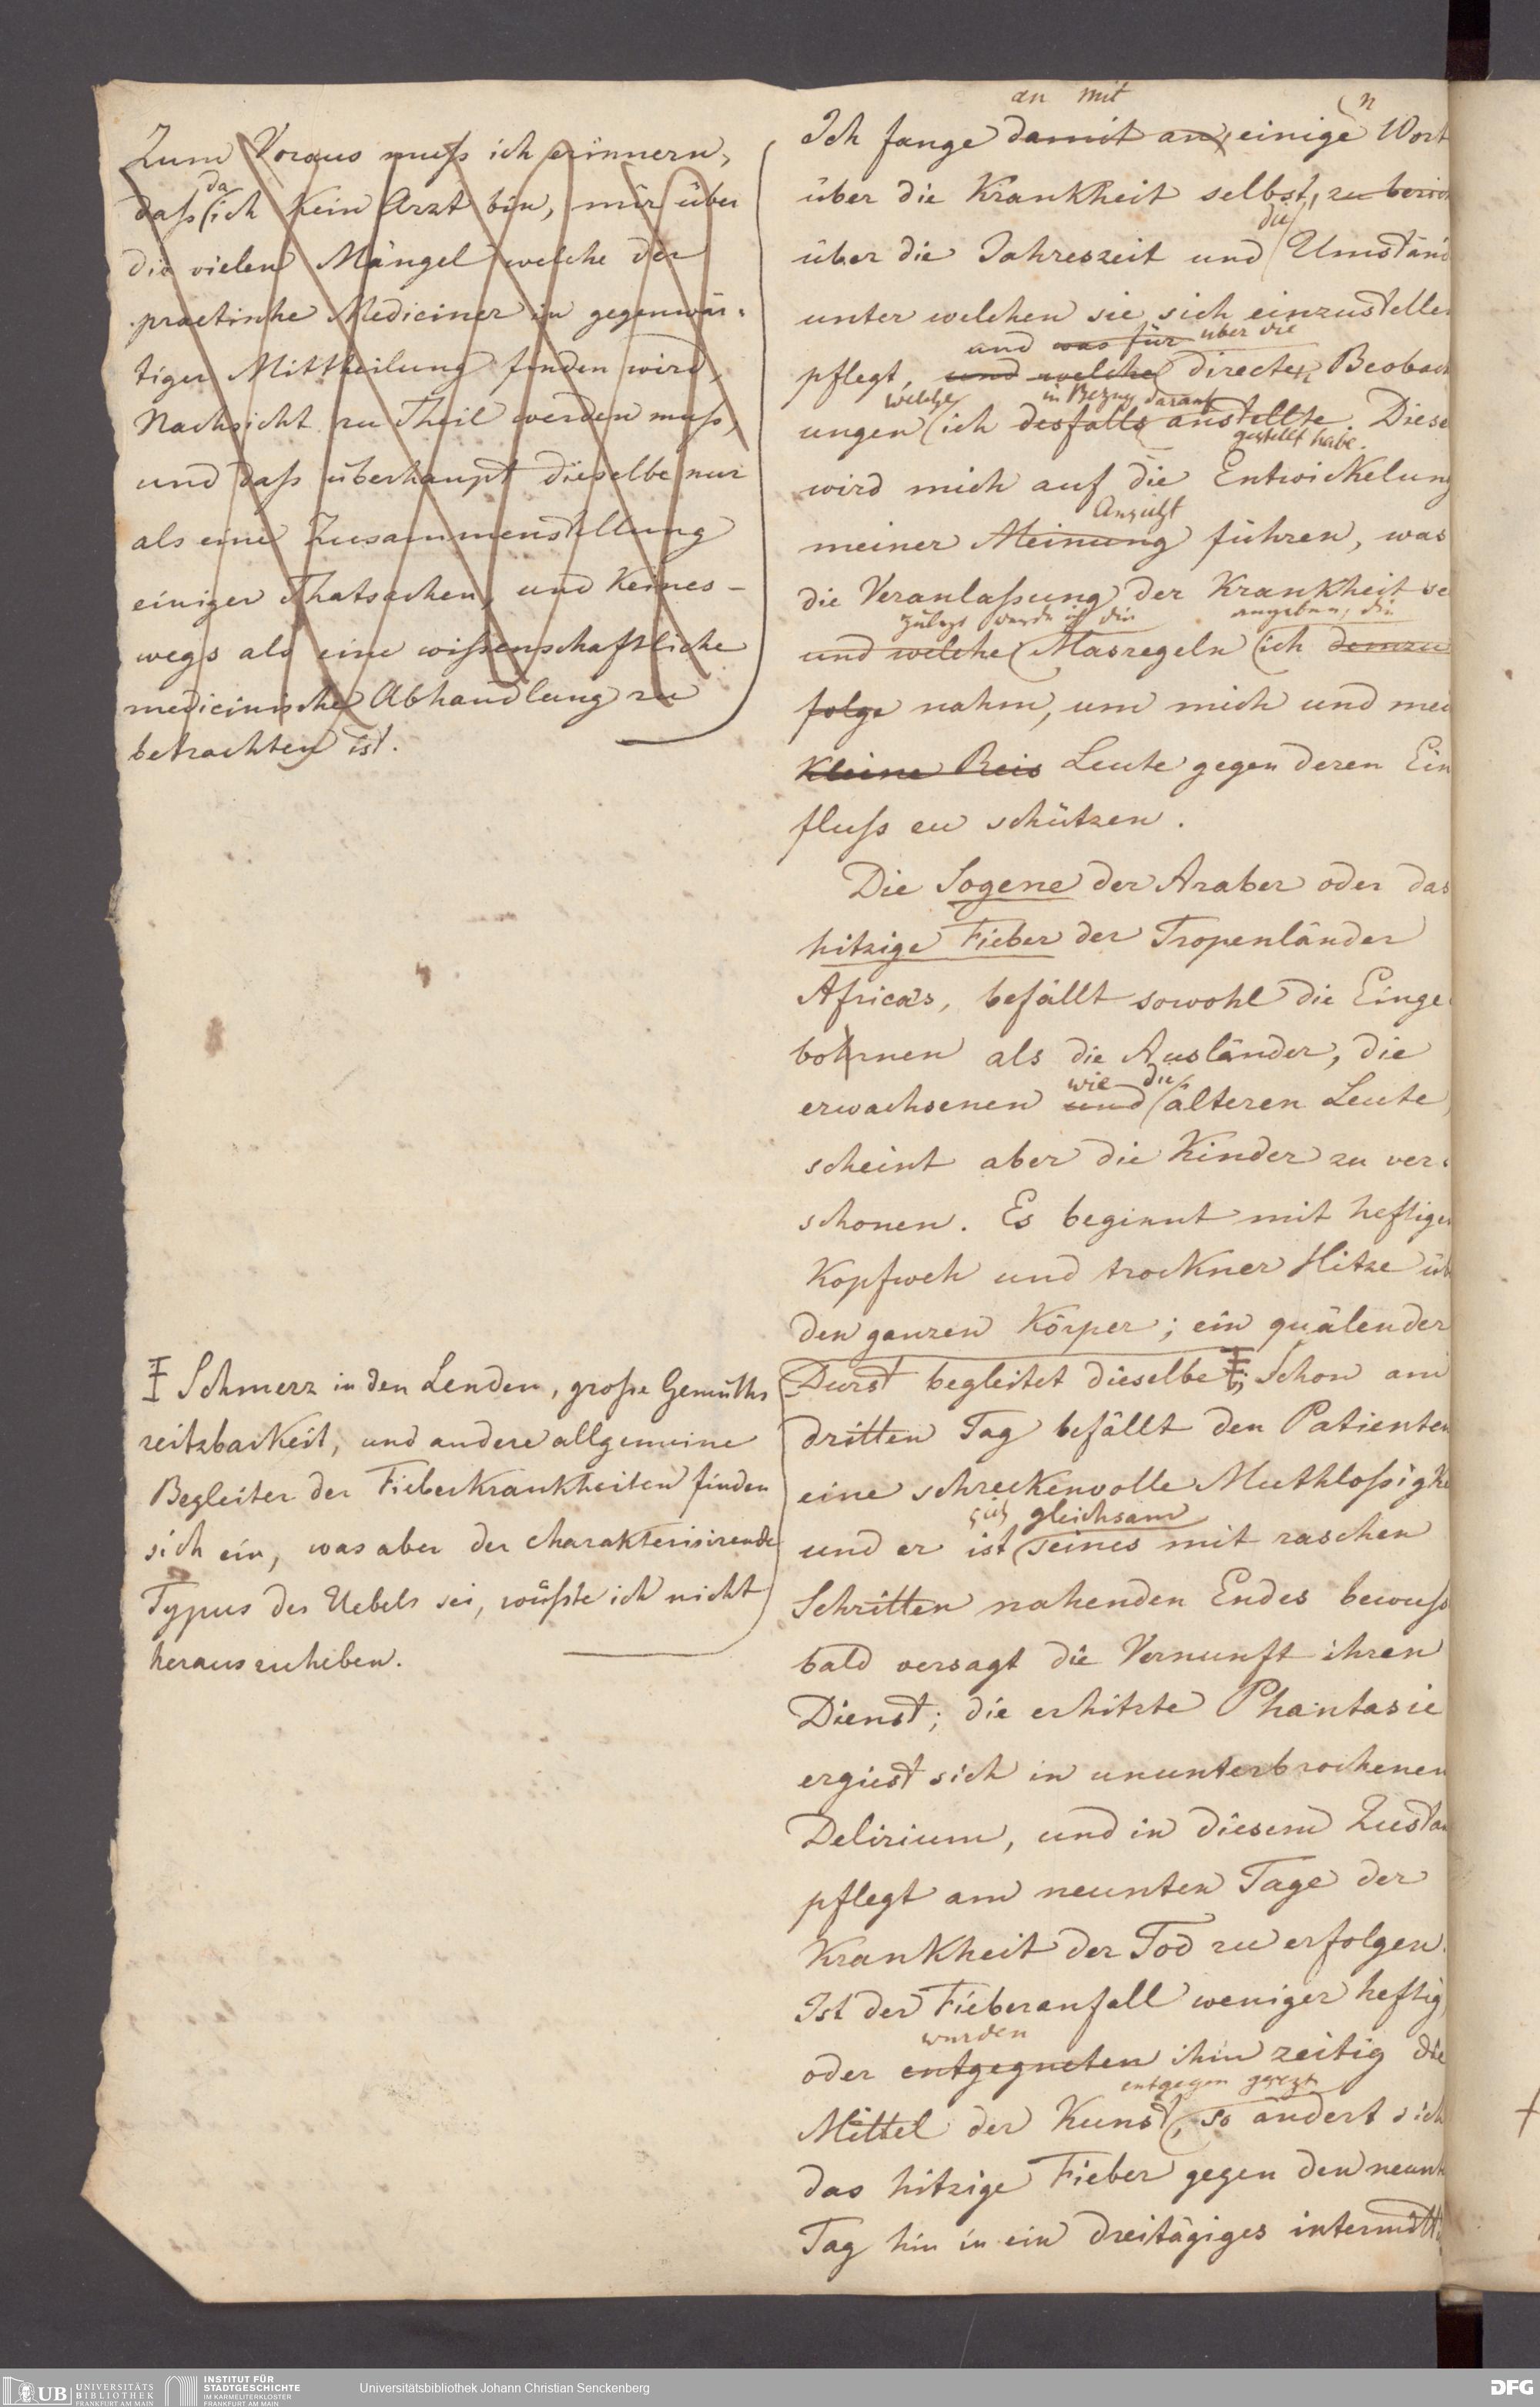 Zum Voraus muß ich erinnern,
da
daß ich kein Arzt bin, mir über
die vielen Mängel welche der
practische Mediciner in gegenwär-
tiger Mittheilung finden wird,
Nachsicht zu Theil werden muß,
und daß überhaupt dieselbe nur
als eine Zusammenstellung
einiger Thatsachen, und keines-
wegs als eine wißenschaftliche
medicinische Abhandlung zu
betrachten ist.
Ŧ Schmerz in den Lenden, große Gemüths
reitzbarkeit, und andere allgemeine
Begleiter der Fieberkrankheiten finden
sich ein, was aber der charakterisirende
Typus des Uebels sei, wüßte ich nicht
herauszuheben.
an mit n
Ich fange damit an, einige Wort
über die Krankheit selbst, zu berich
die
über die Jahreszeit und Umständ
unter welchen sie sich einzustellen
und was für über die
pflegt, und welche directen Beobach
welche in Bezug darauf
ungen ich desfalls anstellte. Diese
gestellt habe.
wird mich auf die Entwickelung
Ansicht
meiner Meinung führen, was
die Veranlaßung der Krankheit se
zulezt werde ich die angeben, die
und welche Masregeln ich demzu
folge nahm, um mich und mei
kleine Reis Leute gegen deren Ein
fluß zu schützen.
Die Sogene der Araber oder das
hitzige Fieber der Tropenländer
Africa's, befällt sowohl die Einge
bohrnen als die Ausländer, die
wie die
erwachsenen und älteren Leute
scheint aber die Kinder zu ver-
schonen. Es beginnt mit heftigen
Kopfweh und trockner Hitze üb
den ganzen Körper; ein quälender
Durst begleitet dieselbe Ŧ; Schon am
dritten Tag befällt den Patienten
eine schreckenvolle Muthloßigke
sich gleichsam
und er ist seines mit raschen
Schritten nahenden Endes bewuß
bald versagt die Vernunft ihren
Dienst; die erhitzte Phantasie
ergiest sich in ununterbrochenen
Delirium, und in diesem Zustan
pflegt am neunten Tage der
Krankheit der Tod zu erfolgen.
Ist der Fieberanfall weniger heftig,
wurden
oder entgegneten ihm zeitig die
entgegen gesezt
Mittel der Kunst, so ändert sich
das hitzige Fieber gegen den neunt
Tag hin in ein dreitägiges intermitti
UB UNIVERSITÄTS
BIBLIOTHEK
FRANKFURT AM MAIN
INSTITUT FÜR
STADTGESCHICHTE
IM KARMELITERKLOSTER
FRANKFURT AM MAIN
Universitätsbibliothek Johann Christian Senckenberg
DFG